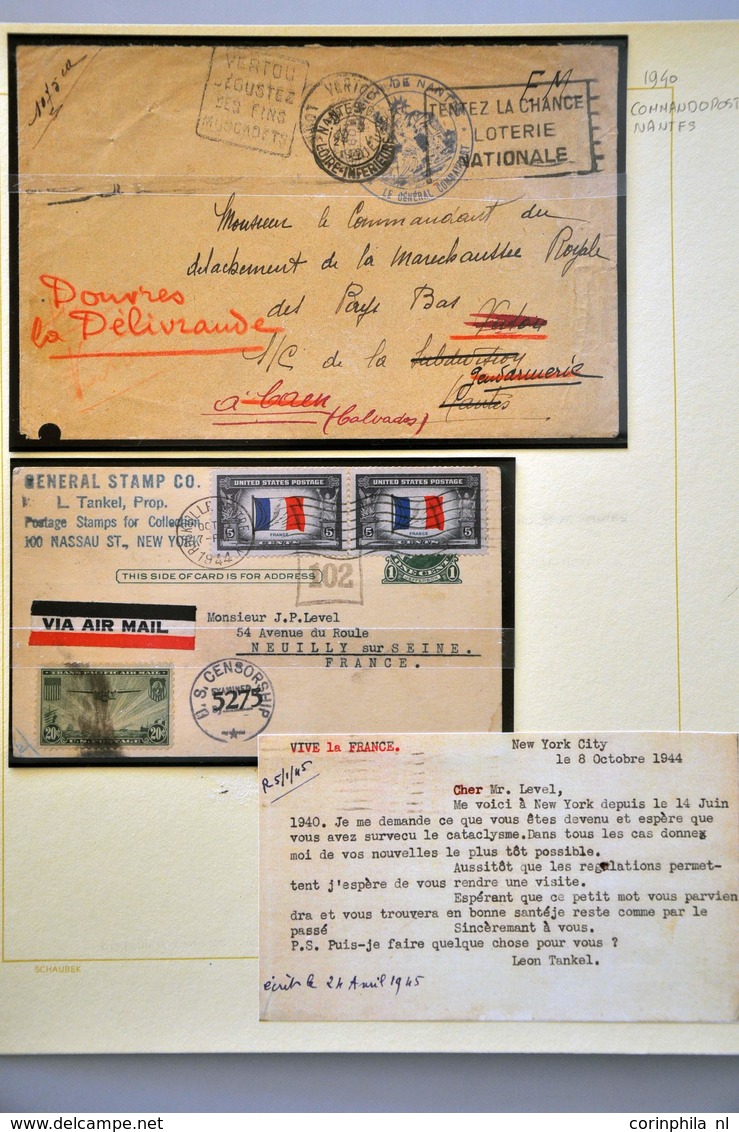 1940
COMMANDOPOST
NANTES
VERTOU
DEGUSTEZ
SES FINS
MUSCADETS
VERTOU
LOIRE-INFERIEURE
DE NANTES
LE GENERAL COMMANDANT
F M
TENTEZ LA CHANCE
LOTERIE
NATIONALE
Monsieur le Commandant du
détachement de la Marechaussée Royale
des Pays Bas
Douvres
la Délivrande
S/C de la Subdivision
Gendarmerie
Nantes
à Caen
(Calvados)
GENERAL STAMP CO.
L. Tankel, Prop.
Postage Stamps for Collection
100 NASSAU ST., NEW YORK
OCT
1944
UNITED STATES POSTAGE
5 FRANCE 5
CENTS
UNITED STATES POSTAGE
5 FRANCE 5
CENTS
THIS SIDE OF CARD IS FOR ADDRESS
102
1 JEFFERSON 1
VIA AIR MAIL
Monsieur J.P.Level
54 Avenue du Roule
NEUILLY sur SEINE.
FRANCE.
TRANS-PACIFIC AIR MAIL
20¢ U.S. POSTAGE 20¢
U.S. CENSORSHIP
EXAMINED BY
5275
VIVE la FRANCE.
New York City
le 8 Octobre 1944
R 5/1/45
Cher Mr. Level,
Me voici à New York depuis le 14 Juin
1940. Je me demande ce que vous êtes devenu et espère que
vous avez survecu le cataclysme.Dans tous les cas donnez
moi de vos nouvelles le plus tôt possible.
Aussitôt que les regulations permet-
tent j'espère de vous rendre une visite.
Espérant que ce petit mot vous parvien
dra et vous trouvera en bonne santéje reste comme par le
passé Sincèremant à vous.
P.S. Puis-je faire quelque chose pour vous ?
Leon Tankel.
écrit le 24 Avril 1945
SCHAUBEK
corinphila nl